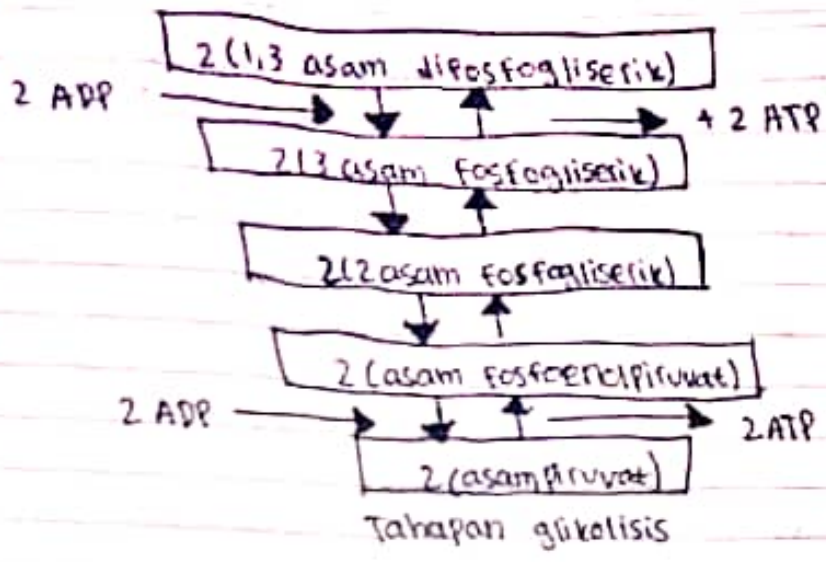 2 (1,3 asam difosfogliserik)
2 ADP
+ 2 ATP
2(3 asam fosfogliserik)
2(2 asam fosfogliserik)
2 (asam fosfoenolpiruvat)
2 ADP
2 ATP
2 (asam piruvat)
Tahapan glikolisis